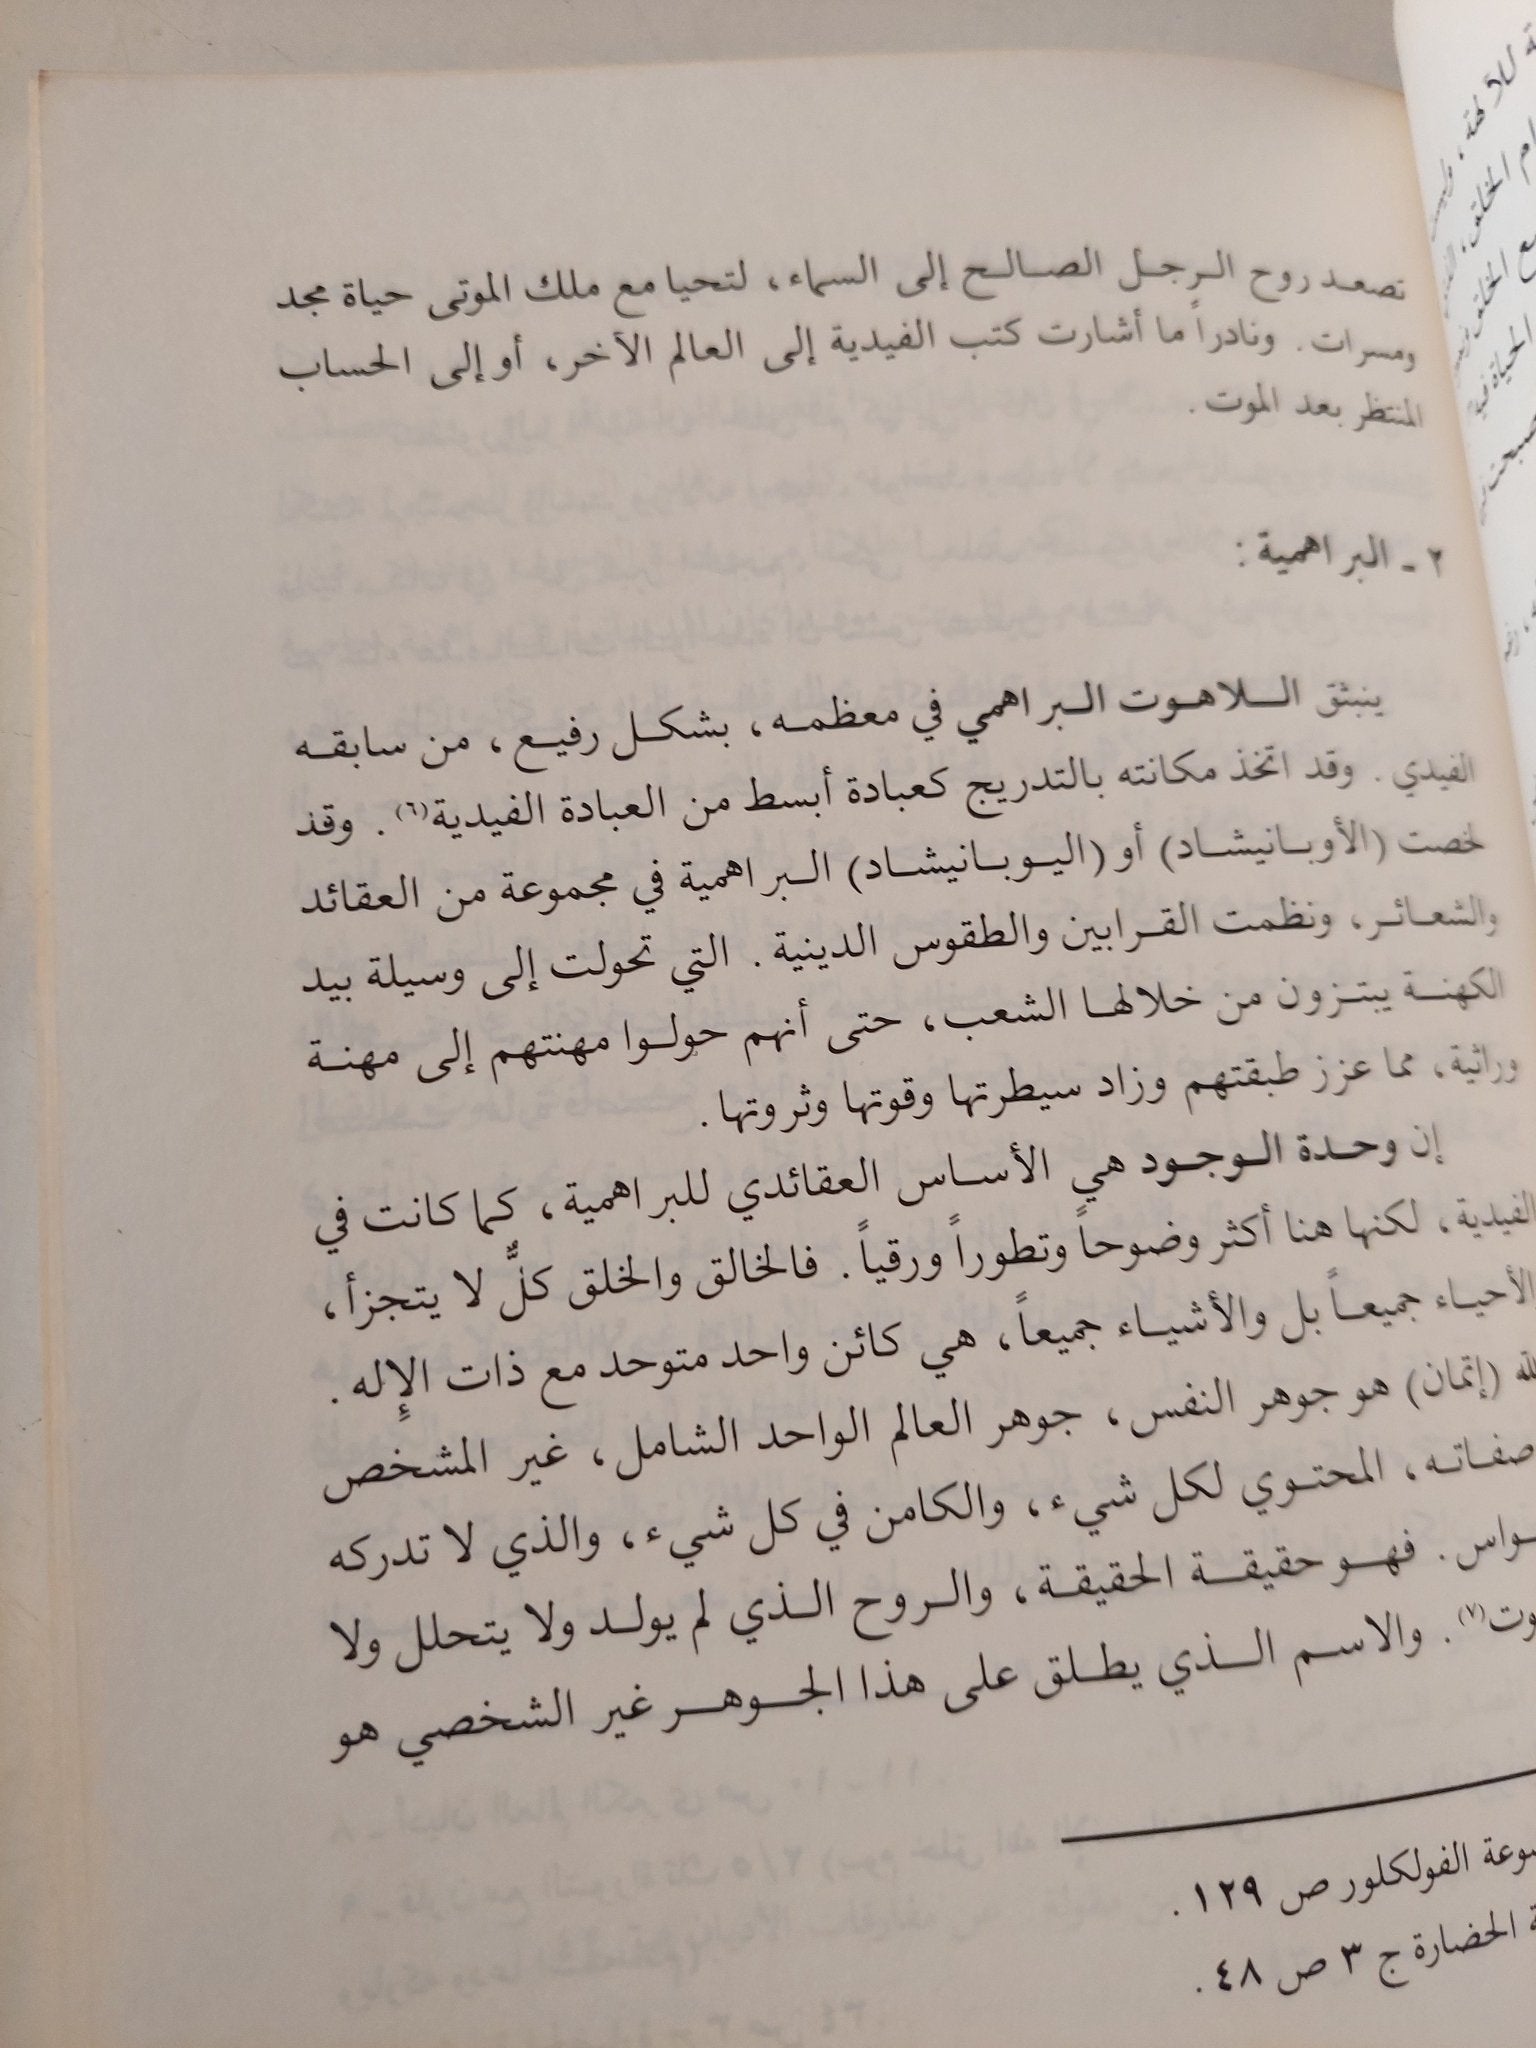 تصعد روح الرجل الصالح إلى السماء، لتحيا مع ملك الموتى حياة مجد
ومسرات. ونادراً ما أشارت كتب الفيدية إلى العالم الآخر، أو إلى الحساب
المنتظر بعد الموت.
٢ - البراهمية:
ينبثق اللاهوت البراهمي في معظمه، بشكل رفيع، من سابقه
الفيدي. وقد اتخذ مكانته بالتدريج كعبادة أبسط من العبادة الفيدية(٦). وقد
لخصت (الأوبانيشاد) أو (اليوبانيشاد) البراهمية في مجموعة من العقائد
والشعائر، ونظمت القرابين والطقوس الدينية. التي تحولت إلى وسيلة بيد
الكهنة يبتزون من خلالها الشعب، حتى أنهم حولوا مهنتهم إلى مهنة
وراثية، مما عزز طبقتهم وزاد سيطرتها وقوتها وثروتها.
إن وحدة الوجود هي الأساس العقائدي للبراهمية، كما كانت في
الفيدية، لكنها هنا أكثر وضوحاً وتطوراً ورقياً. فالخالق والخلق كلٌّ لا يتجزأ،
الأحياء جميعاً بل والأشياء جميعاً، هي كائن واحد متوحد مع ذات الإِله.
(إتمان) هو جوهر النفس، جوهر العالم الواحد الشامل، غير المشخص
صفاته، المحتوي لكل شيء، والكامن في كل شيء، والذي لا تدركه
ـواس. فهو حقيقة الحقيقة، والروح الذي لم يولد ولا يتحلل ولا
ـوت(٧). والاسم الذي يطلق على هذا الجوهر غير الشخصي هو
ـوعة الفولكلور ص ١٢٩.
ـة الحضارة ج ٣ ص ٤٨.